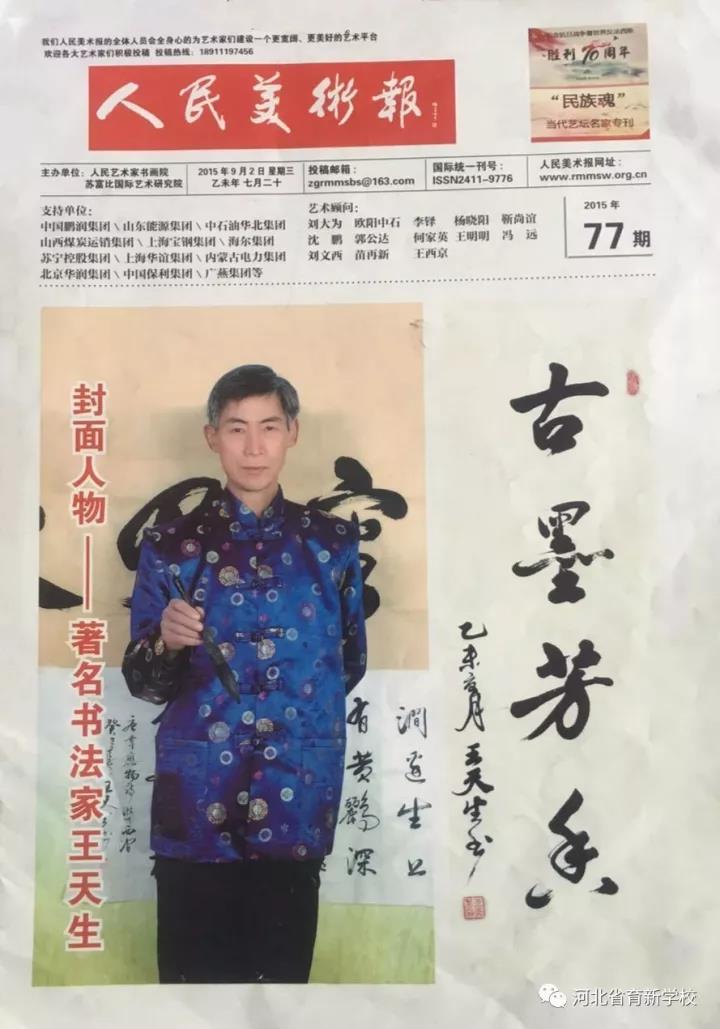 我们人民美术报的全体人员会全身心的为艺术家们建设一个更宽阔、更美好的艺术平台
欢迎各大艺术家们积极投稿 投稿热线：18911197456
人民美術報
胜利70周年
“民族魂”
当代艺坛名家专刊
主办单位：人民艺术家书画院
苏富比国际艺术研究院
2015年9月2日 星期三
乙未年 七月二十
投稿邮箱：
zgrmmsbs@163.com
国际统一刊号：
ISSN2411-9776
人民美术报网址：
www.rmmsw.org.cn
支持单位：
中国鹏润集团\山东能源集团\中石油华北集团
山西煤炭运销集团\上海宝钢集团\海尔集团
苏宁控股集团\上海华谊集团\内蒙古电力集团
北京华润集团\中国保利集团\广燕集团等
艺术顾问：
刘大为 欧阳中石 李铎 杨晓阳 靳尚谊
沈鹏 郭公达 何家英 王明明 冯远
刘文西 苗再新 王西京
2015年
77期
封面人物——著名书法家王天生
古墨芳香
乙未夏月 王天生书
澗邊生上
有黄鸝深
河北省育新学校